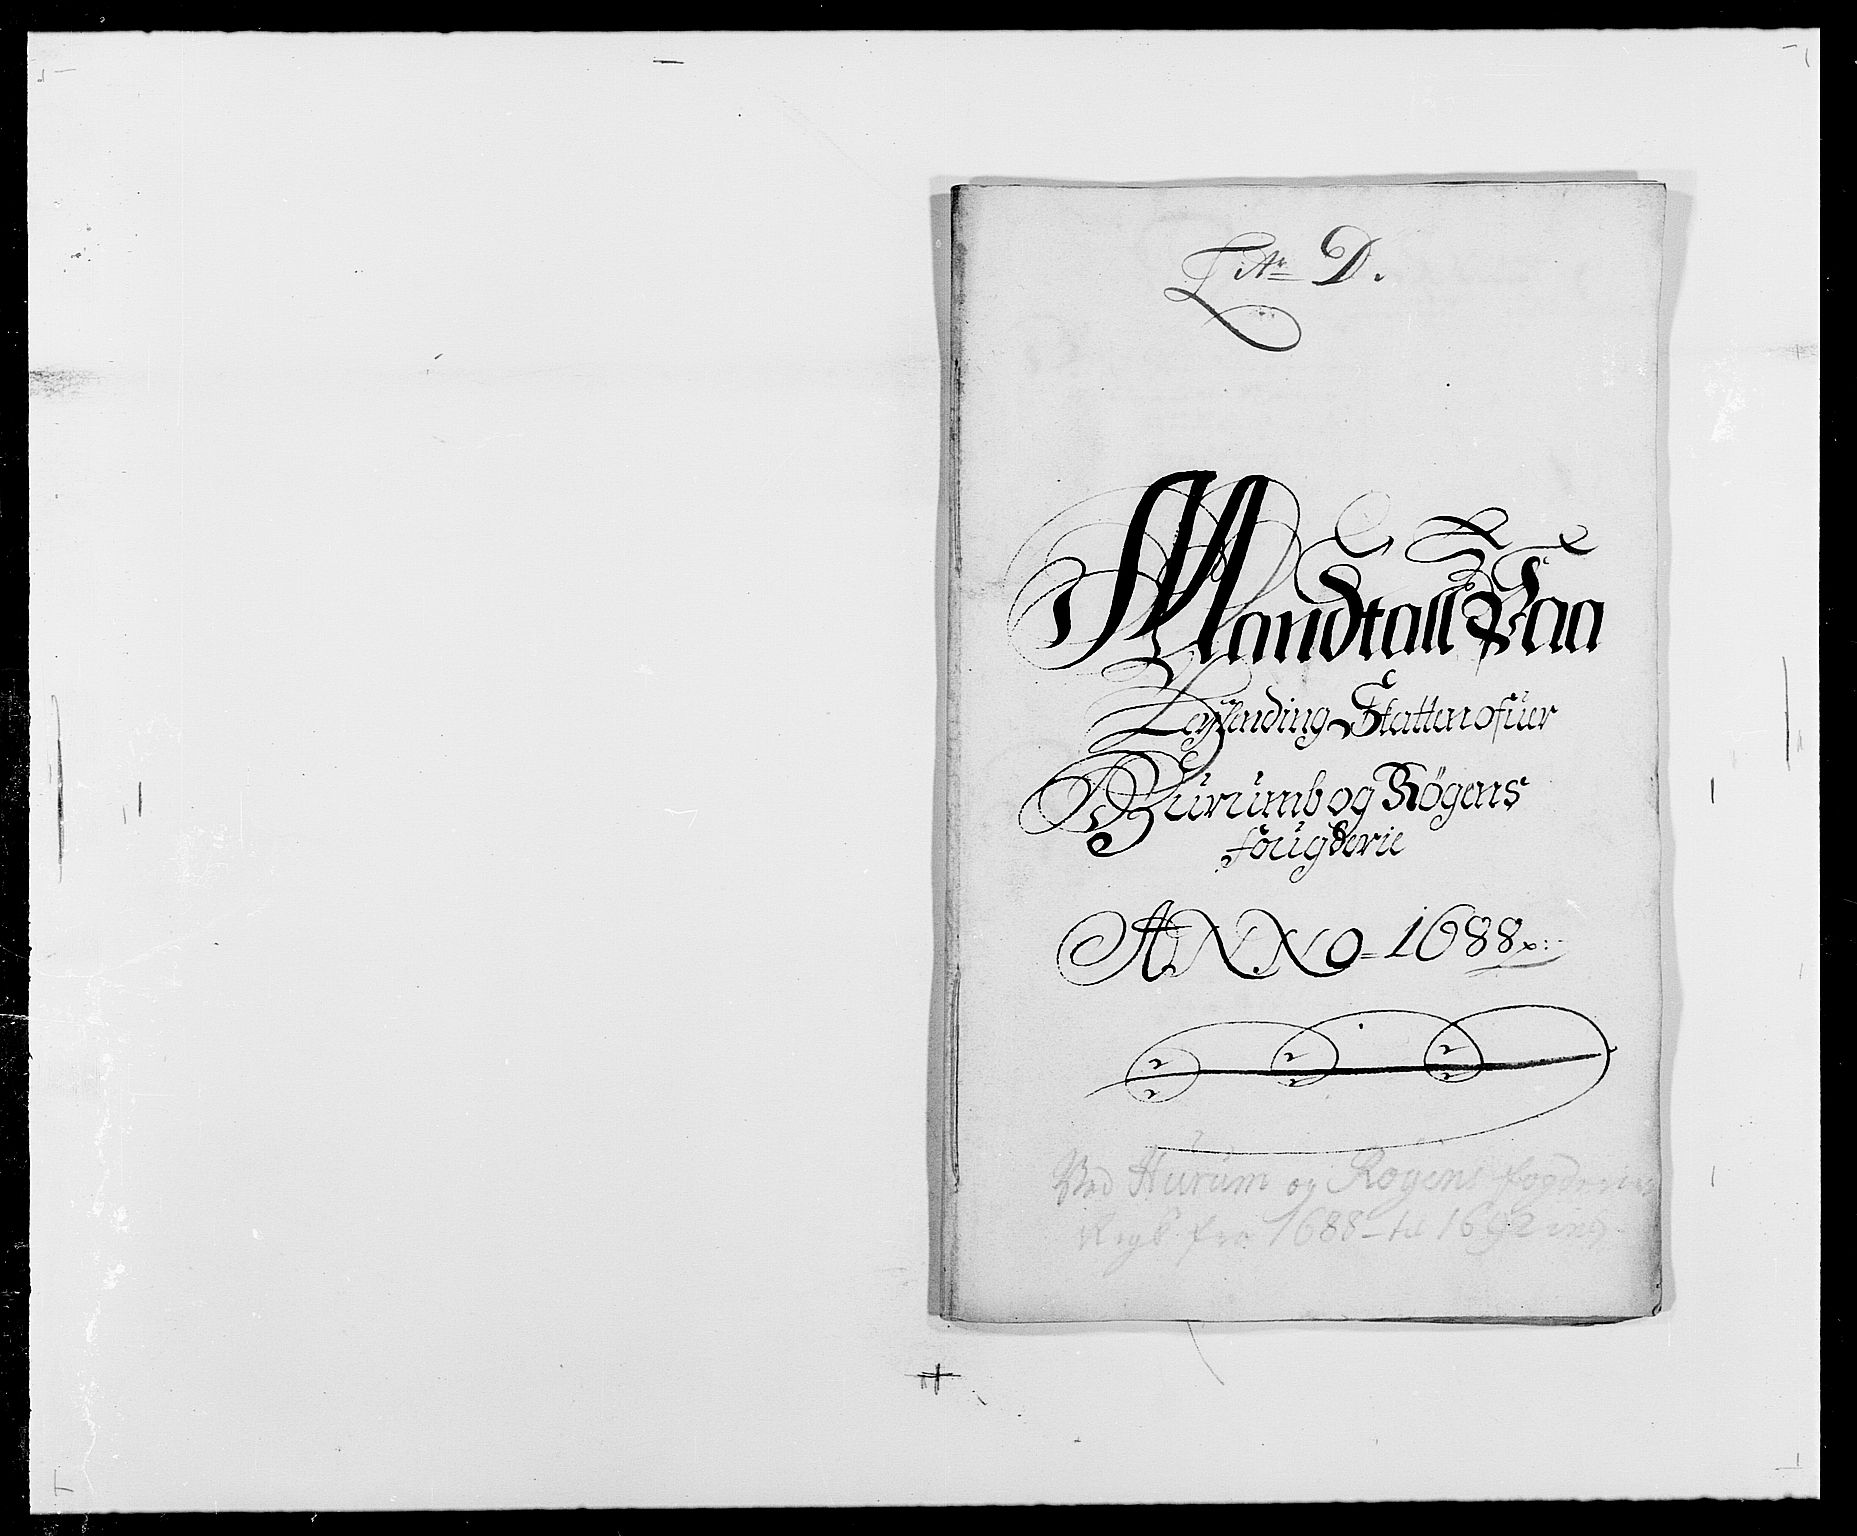 Litr D.
Mandtall Paa
Leylending Skatten ofuer
Burumb og Rögens
fougderie
ANNO 1688
Ved Hurum og Rogens fogderies
Regk fra 1688 til 1692